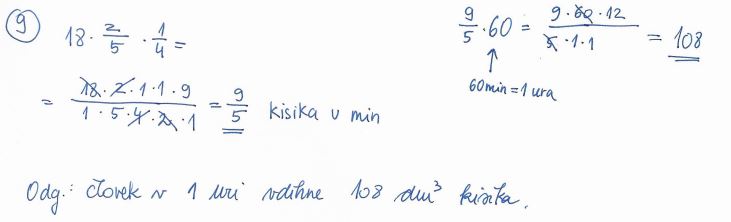 9
18 · 2/5 · 1/4 =
= 18 · 2 · 1 · 1 · 9 / 1 · 5 · 4 · 2 · 1 = 9/5 kisika v min
9/5 · 60 = 9 · 60 · 12 / 5 · 1 · 1 = 108
60 min = 1 ura
Odg.: človek v 1 uri vdihne 108 dm³ kisika.